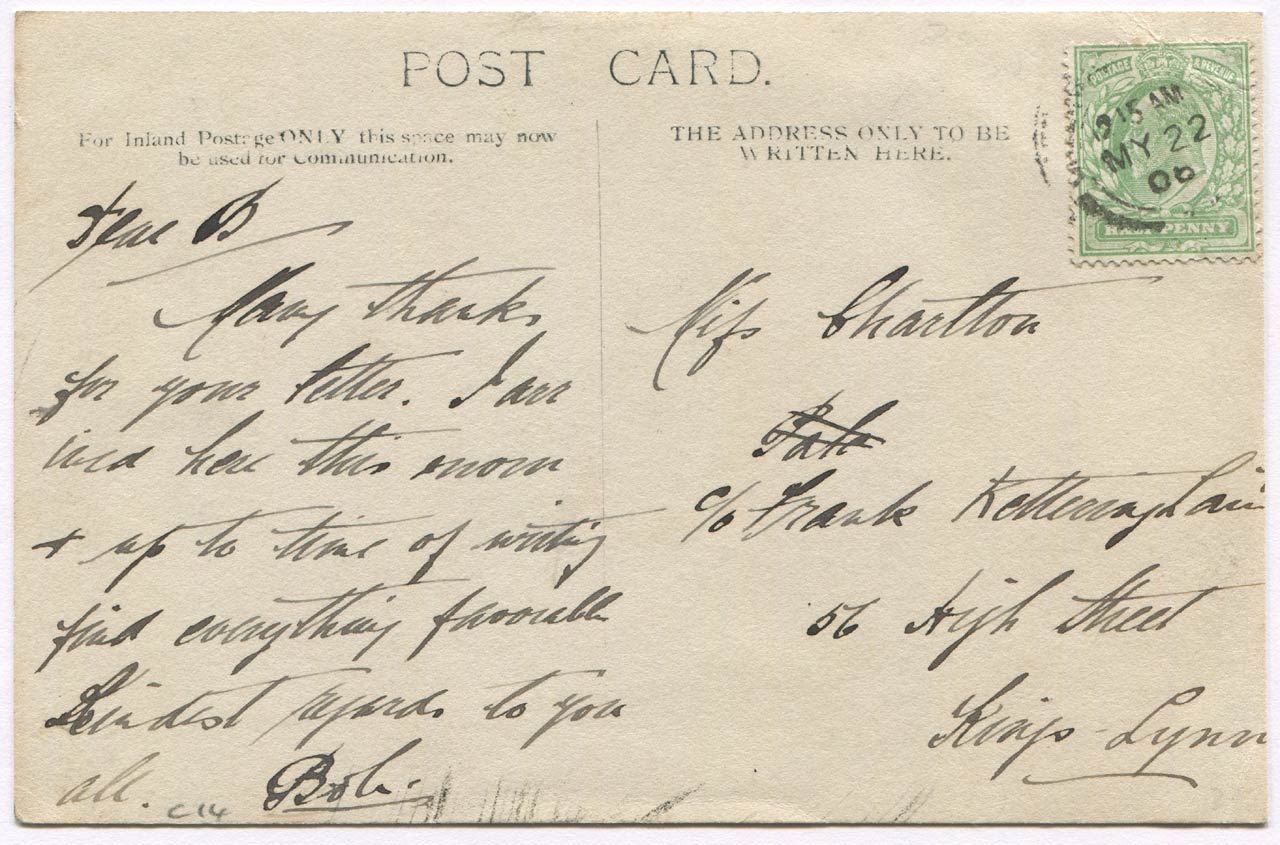 POST CARD.
For Inland Postage ONLY this space may now
be used for Communication.
THE ADDRESS ONLY TO BE
WRITTEN HERE.
POSTAGE & REVENUE
9 15 AM
MY 22
06
HALF PENNY
Dear B
Many thanks
for your letter. I arr
ived here this morn
+ up to time of writing
find everything favorable
Kindest regards to you
all. Bob.
C14
Miss Charlton
c/o Frank Kettering
56 High Street
Kings-Lynn